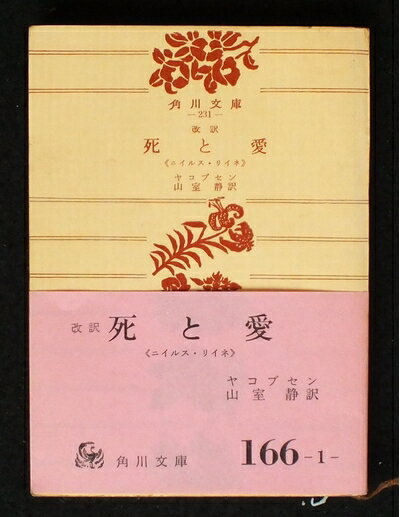 角川文庫
—231—
改訳
死と愛
《ニイルス・リイネ》
ヤコブセン
山室静訳
改訳 死と愛
《ニイルス・リイネ》
ヤコブセン
山室静訳
角川文庫 166-1-